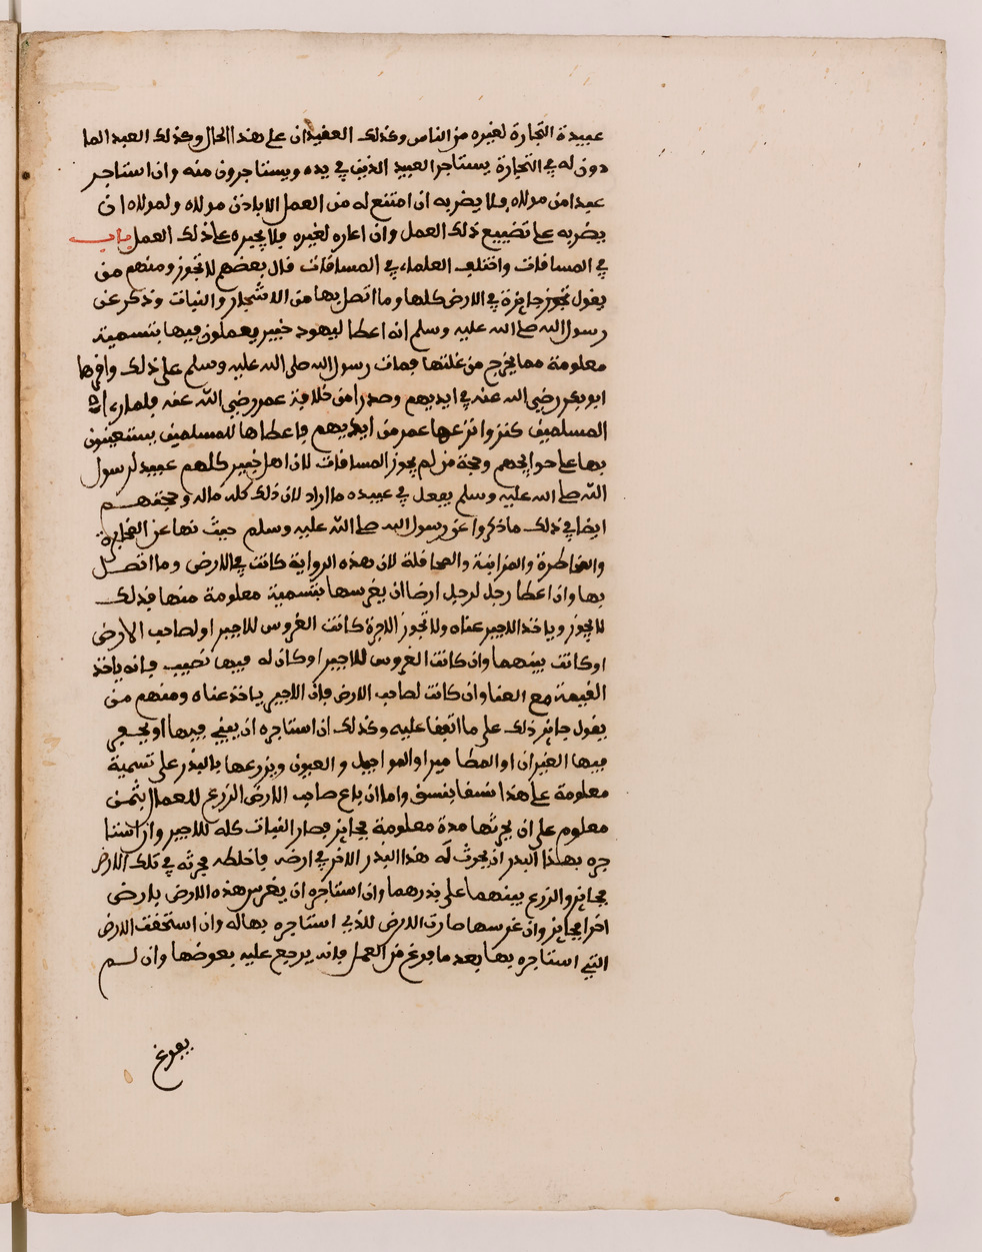 عبيدة التجارة لغيره من الناس وكذلك العقيدان على هذا الحال وكذلك العبد الما
دون له في التجارة يستاجر العبيد الذين في يده ويستاجرون منه وان استاجر
عبدا من مولاه فلا يضربه ان امتنع له من العمل الا باذن مولاه ولمولاه ان
يضربه على تضييع ذلك العمل وان اعاره لغيره فلا يجبره على ذلك العمل باب
في المساقات واختلف العلماء في المساقات قال بعضهم لا تجوز ومنهم من
يقول تجوز جايزة في الارض كلها وما اتصل بها من الاشجار والنبات وذكر عن
رسول الله صلى الله عليه وسلم انه اعطا ليهود خيبر يعملون فيها بتسمية
معلومة مما يخرج من غلتها فمات رسول الله صلى الله عليه وسلم على ذلك واقرها
ابو بكر رضي الله عنه في ايديهم وصدرا من خلافة عمر رضي الله عنه فلما راء ان
المسلمين كثروا نزعها عمر من ايديهم فاعطاها للمسلمين يستعينون
بها على حوايجهم وحجة من لم يجوز المساقات لان اهل خيبر كلهم عبيد لرسول
الله صلى الله عليه وسلم يفعل في عبيده ما اراد لان ذلك كله ماله وحجتهم
ايضا في ذلك ما ذكروا عن رسول الله صلى الله عليه وسلم حيث نها عن المخابرة
والمخاطرة والمزابنة والمحاقلة لان هذه الرواية كانت في الارض وما اتصل
بها وان اعطا رجل لرجل ارضا ان يغرسها بتسمية معلومة منها فذلك
لا يجوز وياخذ الاجير عناه ولا تجوز الاجرة كانت الغروس للاجير او لصاحب الارض
او كانت بينهما وان كانت الغروس للاجير او كان له فيها نصيب فانه ياخذ
القيمة مع العنا وان كانت لصاحب الارض فان الاجير ياخذ عناه ومنهم من
يقول جايز ذلك على ما اتفقا عليه وكذلك ان استاجره ان يبني فيها او يحفر
فيها الغيران او المطامير او المواجيل والعيون ويزرعها بالبذر على تسمية
معلومة على هذا نسقا بنسق واما ان باع صاحب الارض الزرع للعمال بثمن
معلوم على ان يحرثها مدة معلومة فجايز فصار النبات كله للاجير وان استا
جره بهذا البذر ان يحرث له هذا البذر الاخر في ارضه فاخلطه فحرثه في تلك الارض
فجايز والزرع بينهما على بذرهما وان استاجره ان يغرس هذه الارض بارض
اخرا فجايز وان غرسها صارت الارض للذي استاجره بها له وان استحقت الارض
التي استاجره بها بعد ما فرغ من العمل فانه يرجع عليه بعوضها وان لم
يفرغ